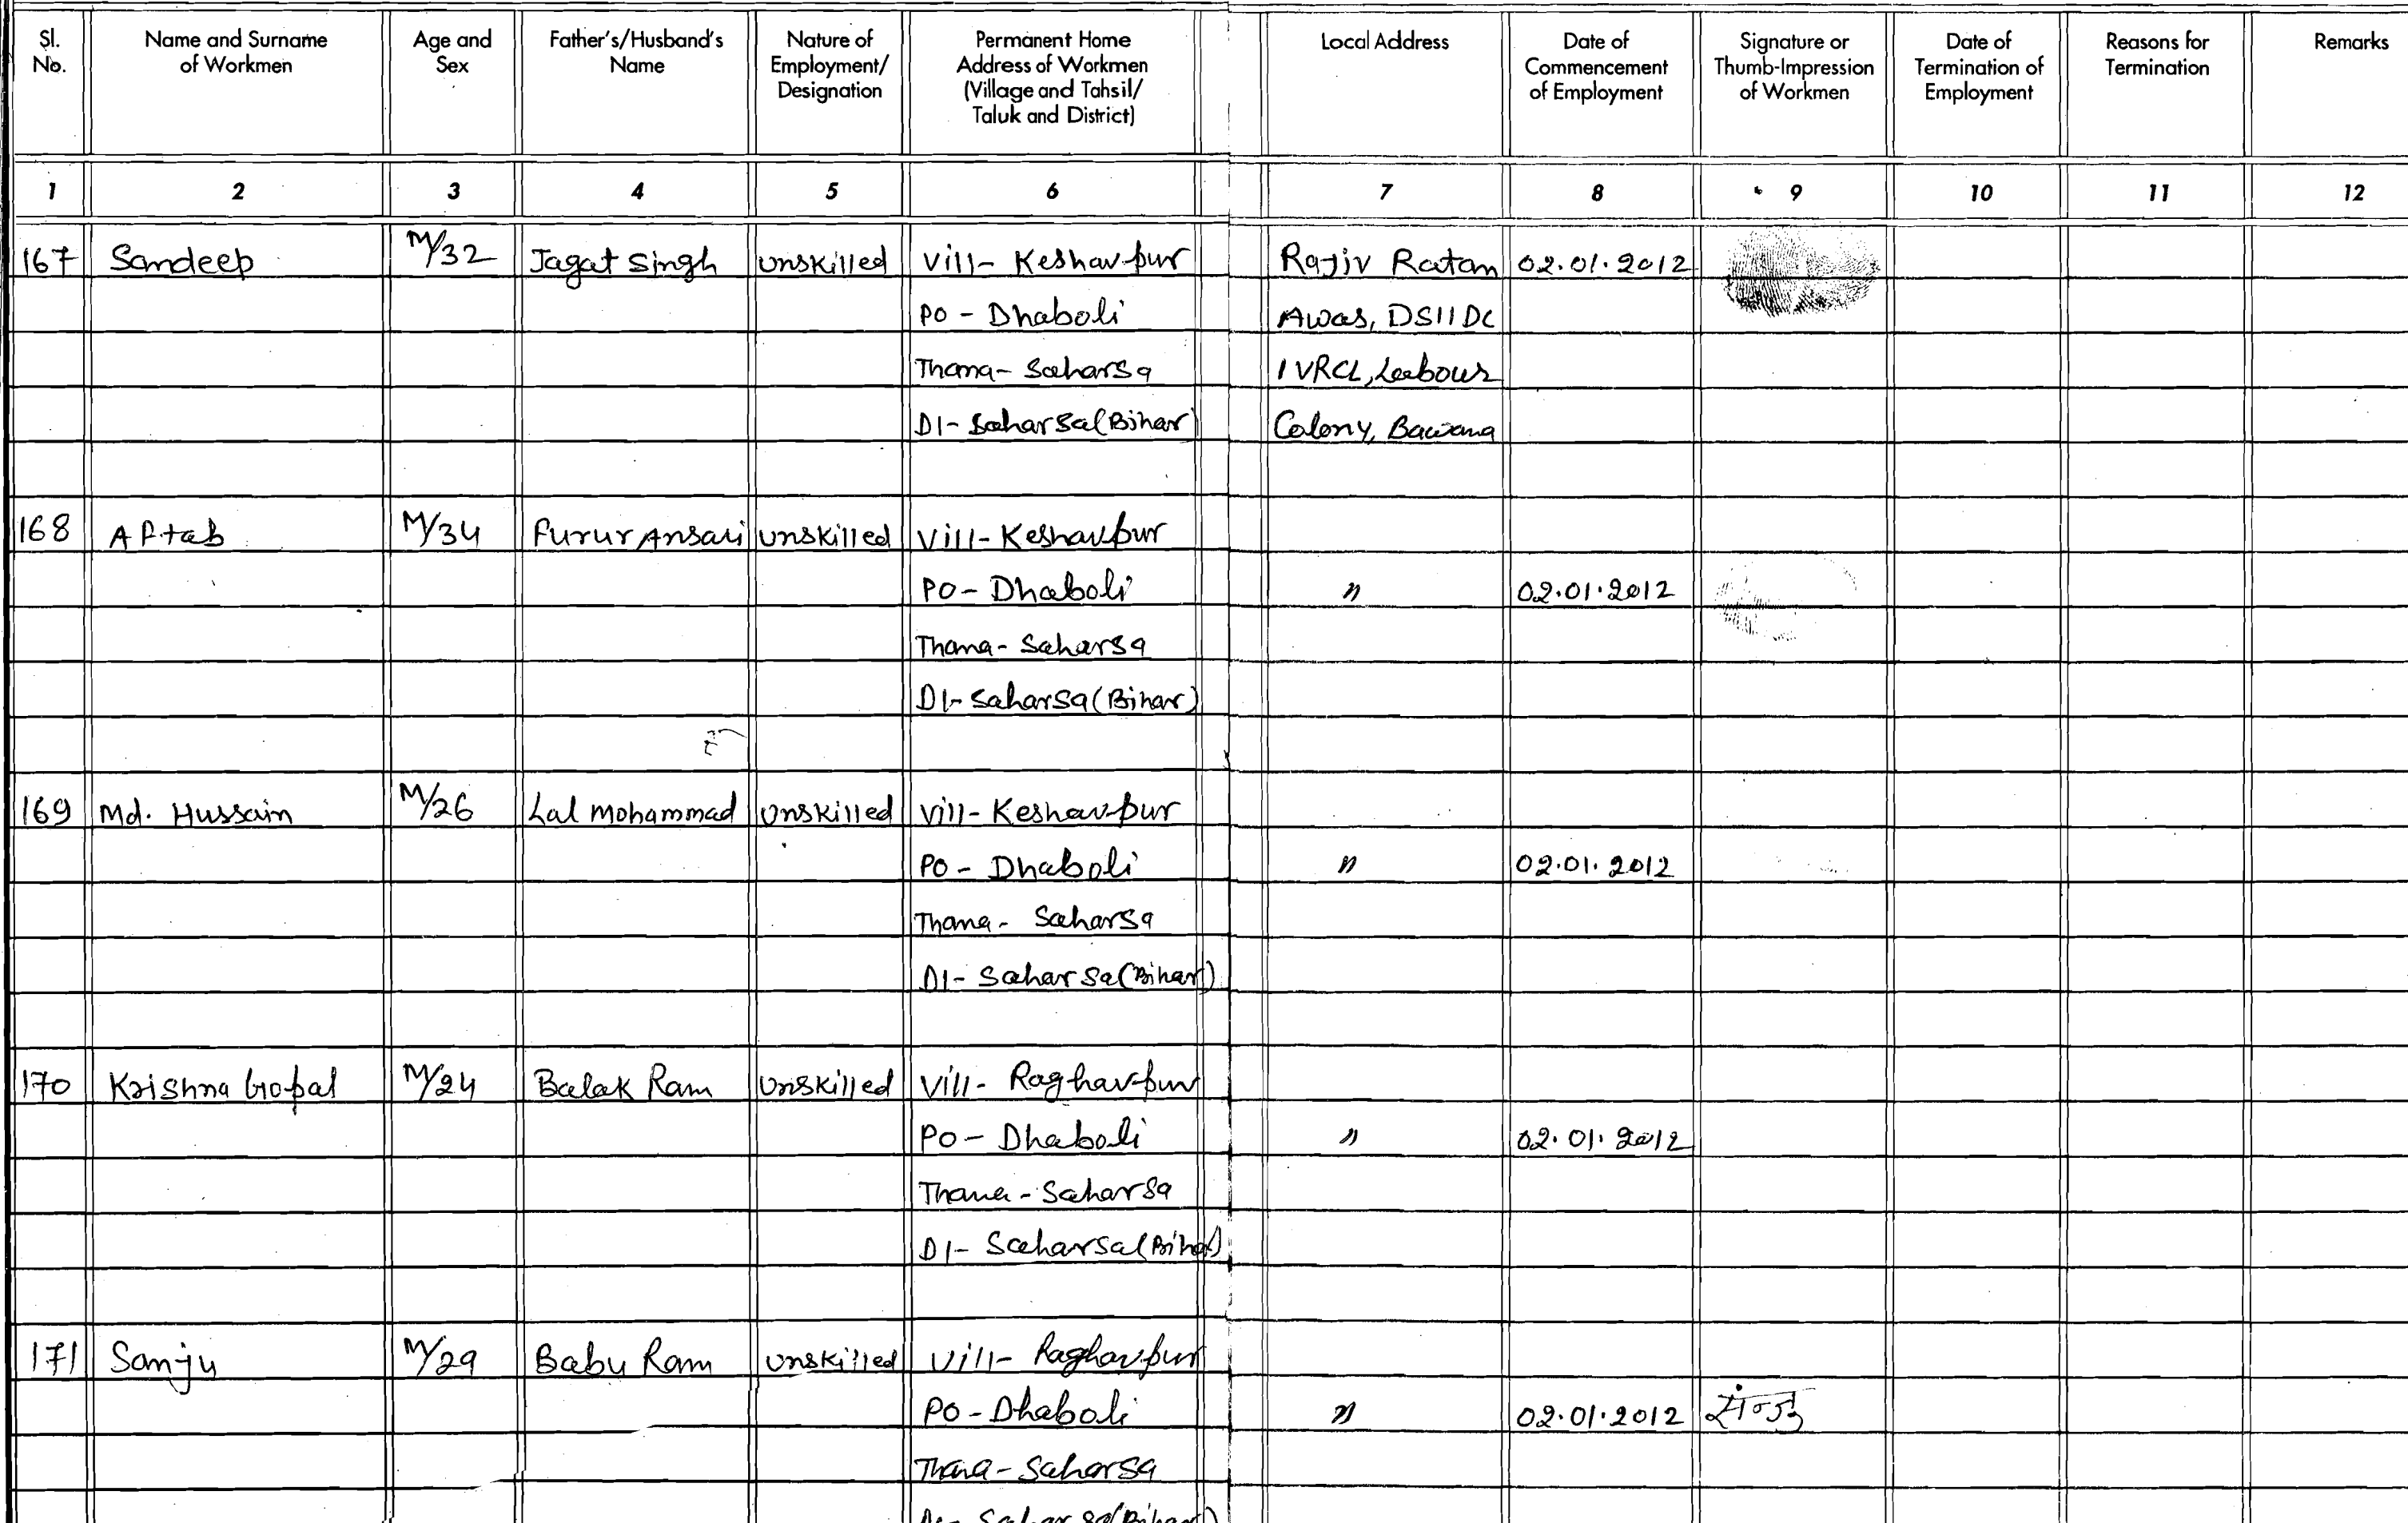 Sl. No. Name and Surname of Workmen Age and Sex Father's/Husband's Name Nature of Employment/ Designation Permanent Home Address of Workmen (Village and Tahsil/ Taluk and District) Local Address Date of Commencement of Employment Signature or Thumb-Impression of Workmen Date of Termination of Employment Reasons for Termination Remarks
1 2 3 4 5 6 7 8 9 10 11 12
167 Sandeep M/32 Jagat Singh Unskilled Vill- Keshavpur Rajiv Ratan 02.01.2012
PO - Dhaboli Awas, DSIIDC
Thana- Saharsa IVRCL, Labour
DI- Saharsa (Bihar) Colony, Bawana
168 Aftab M/34 Furur Ansari Unskilled Vill- Keshavpur
PO - Dhaboli " 02.01.2012
Thana- Saharsa
DI- Saharsa (Bihar)
169 Md. Hussain M/26 Lal Mohammad Unskilled Vill- Keshavpur
PO - Dhaboli " 02.01.2012
Thana- Saharsa
DI- Saharsa (Bihar)
170 Krishna Gopal M/24 Balak Ram Unskilled Vill- Raghavpur
PO - Dhaboli " 02.01.2012
Thana - Saharsa
DI- Saharsa (Bihar)
171 Sanju M/29 Babu Ram Unskilled Vill- Raghavpur
PO - Dhaboli " 02.01.2012 संजू
Thana - Saharsa
DI- Saharsa (Bihar)